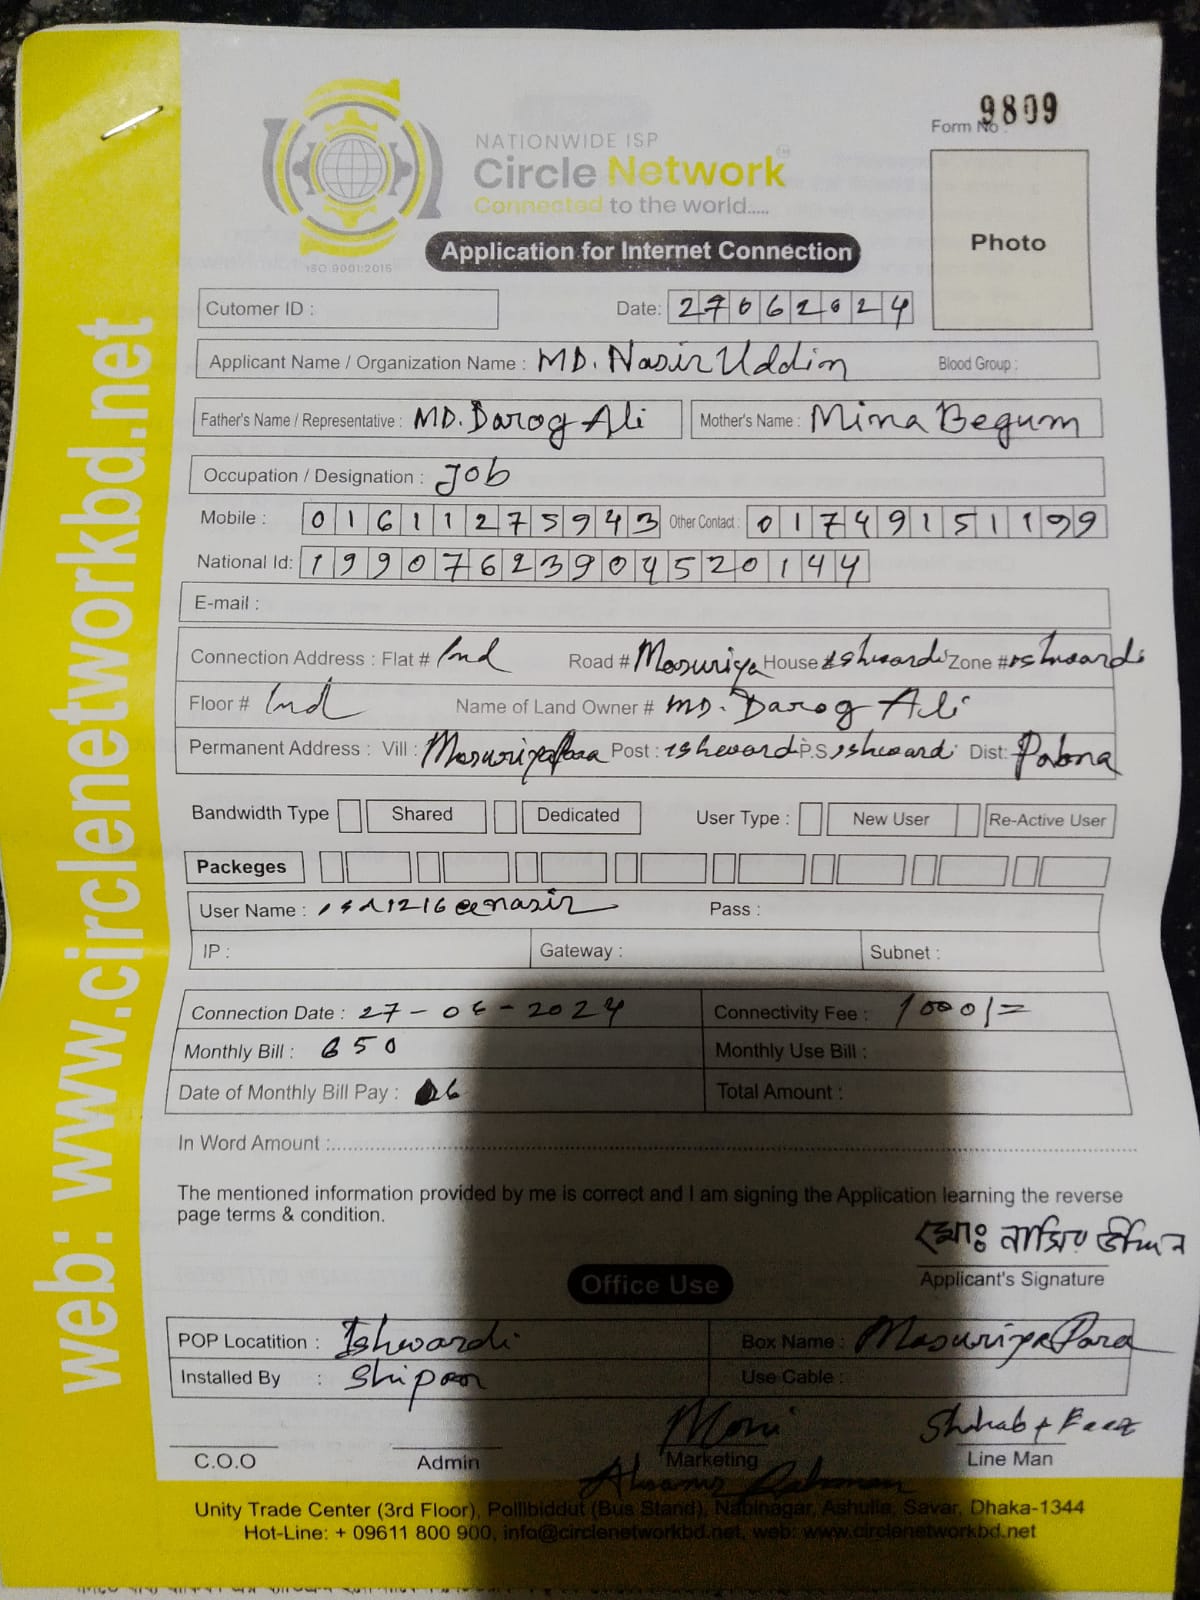 9809
Form No :
NATIONWIDE ISP
Circle Network
Connected to the world.....
ISO 9001:2015
Application for Internet Connection
Photo
Cutomer ID :
Date: 27062024
Applicant Name / Organization Name : MD. Nasir Uddin Blood Group :
Father's Name / Representative : MD. Darog Ali Mother's Name : Mina Begum
Occupation / Designation : Job
Mobile : 01611275943 Other Contact : 01749151199
National Id: 19907623904520144
E-mail :
Connection Address : Flat # Ind Road # Masuriya House # Ishwardi Zone # Ishwardi
Floor # Ind Name of Land Owner # MD. Darog Ali
Permanent Address : Vill : Masuriya Para Post : Ishwardi P.S Ishwardi Dist: Pabna
Bandwidth Type Shared Dedicated User Type : New User Re-Active User
Packeges
User Name : isd1216@nasir Pass :
IP : Gateway : Subnet :
Connection Date : 27-06-2024 Connectivity Fee : 1000/=
Monthly Bill : 650 Monthly Use Bill :
Date of Monthly Bill Pay : 6 Total Amount :
In Word Amount :
The mentioned information provided by me is correct and I am signing the Application learning the reverse
page terms & condition.
মোঃ নাসির উদ্দিন
Applicant's Signature
Office Use
POP Locatition : Ishwardi Box Name : Masuriya Para
Installed By : Shipon Use Cable :
Moni Shihab +
C.O.O Admin Marketing Line Man
Rahman
Unity Trade Center (3rd Floor), Pollibiddut (Bus Stand), Nabinagar, Ashulia, Savar, Dhaka-1344
Hot-Line: + 09611 800 900, info@circlenetworkbd.net, web: www.circlenetworkbd.net
web: www.circlenetworkbd.net